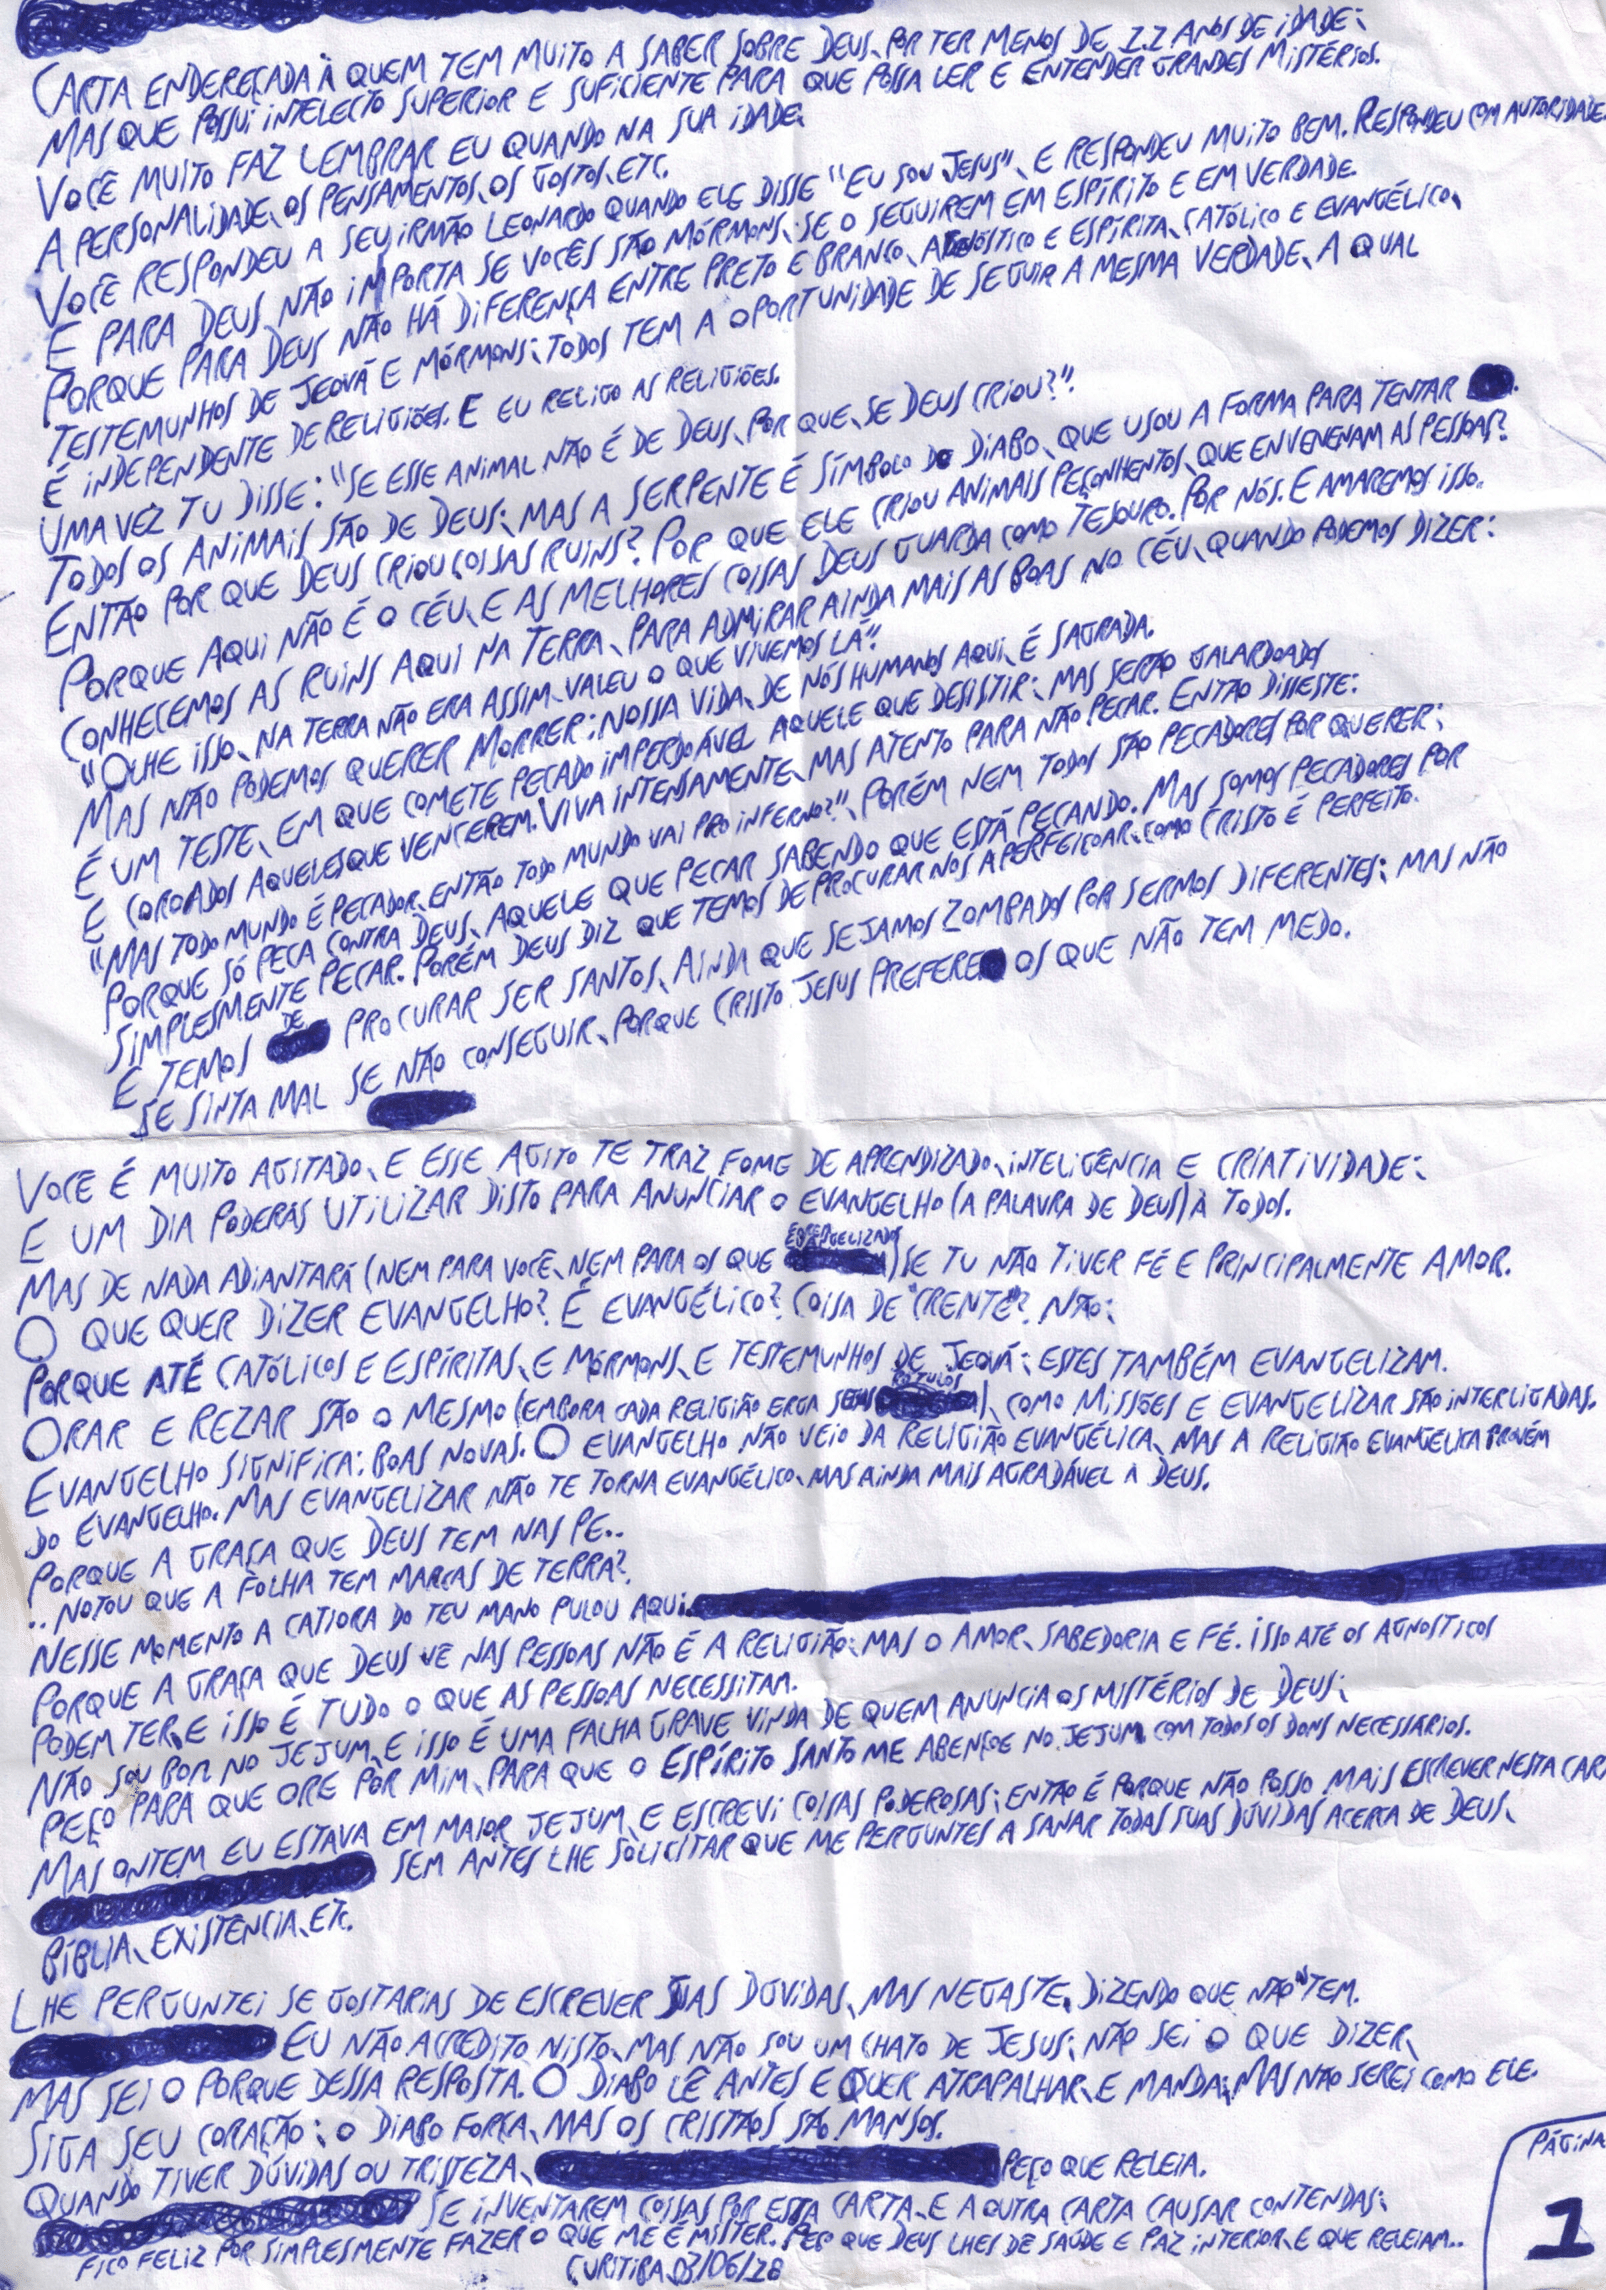 CARTA ENDEREÇADA À QUEM TEM MUITO A SABER SOBRE DEUS, POR TER MENOS DE 12 ANOS DE IDADE;
MAS QUE POSSUI INTELECTO SUPERIOR E SUFICIENTE PARA QUE POSSA LER E ENTENDER GRANDES MISTÉRIOS.
VOCÊ MUITO FAZ LEMBRAR EU QUANDO NA SUA IDADE:
A PERSONALIDADE, OS PENSAMENTOS, OS GOSTOS, ETC.
VOCÊ RESPONDEU A SEU IRMÃO LEONARDO QUANDO ELE DISSE "EU SOU JESUS", E RESPONDEU MUITO BEM. RESPONDEU COM AUTORIDADE.
E PARA DEUS NÃO IMPORTA SE VOCÊS SÃO MÓRMONS, SE O SEGUIREM EM ESPÍRITO E EM VERDADE.
PORQUE PARA DEUS NÃO HÁ DIFERENÇA ENTRE PRETO E BRANCO, AGNÓSTICO E ESPÍRITA, CATÓLICO E EVANGÉLICO,
TESTEMUNHOS DE JEOVÁ E MÓRMONS; TODOS TEM A OPORTUNIDADE DE SEGUIR A MESMA VERDADE, A QUAL
É INDEPENDENTE DE RELIGIÕES. E EU RELIGO AS RELIGIÕES.
UMA VEZ TU DISSE: "SE ESSE ANIMAL NÃO É DE DEUS, POR QUE, SE DEUS CRIOU?".
TODOS OS ANIMAIS SÃO DE DEUS; MAS A SERPENTE É SÍMBOLO DO DIABO, QUE USOU A FORMA PARA TENTAR.
ENTÃO POR QUE DEUS CRIOU COISAS RUINS? POR QUE ELE CRIOU ANIMAIS PEÇONHENTOS, QUE ENVENENAM AS PESSOAS?
PORQUE AQUI NÃO É O CÉU, E AS MELHORES COISAS DEUS GUARDA COMO TESOURO. POR NÓS. E AMAREMOS ISSO.
CONHECEMOS AS RUINS AQUI NA TERRA, PARA ADMIRAR AINDA MAIS AS BOAS NO CÉU, QUANDO PODEMOS DIZER:
"OLHE ISSO, NA TERRA NÃO ERA ASSIM. VALEU O QUE VIVEMOS LÁ".
MAS NÃO PODEMOS QUERER MORRER; NOSSA VIDA, DE NÓS HUMANOS AQUI, É SAGRADA.
É UM TESTE, EM QUE COMETE PECADO IMPERDOÁVEL AQUELE QUE DESISTIR; MAS SERÃO GALARDOADOS
E COROADOS AQUELES QUE VENCEREM. VIVA INTENSAMENTE, MAS ATENTO PARA NÃO PECAR. ENTÃO DISSESTE:
"MAS TODO MUNDO É PECADOR, ENTÃO TODO MUNDO VAI PRO INFERNO?", PORÉM NEM TODOS SÃO PECADORES POR QUERER;
PORQUE SÓ PECA CONTRA DEUS, AQUELE QUE PECAR SABENDO QUE ESTÁ PECANDO. MAS SOMOS PECADORES POR
SIMPLESMENTE PECAR. PORÉM DEUS DIZ QUE TEMOS DE PROCURAR NOS APERFEIÇOAR, COMO CRISTO É PERFEITO.
E TEMOS DE PROCURAR SER SANTOS, AINDA QUE SEJAMOS ZOMBADOS POR SERMOS DIFERENTES; MAS NÃO
SE SINTA MAL SE NÃO CONSEGUIR, PORQUE CRISTO JESUS PREFERE OS QUE NÃO TEM MEDO.
VOCÊ É MUITO AGITADO, E ESSE AGITO TE TRAZ FOME DE APRENDIZADO, INTELIGÊNCIA E CRIATIVIDADE;
E UM DIA PODERÁS UTILIZAR DISTO PARA ANUNCIAR O EVANGELHO (A PALAVRA DE DEUS) À TODOS.
MAS DE NADA ADIANTARÁ (NEM PARA VOCÊ, NEM PARA OS QUE) SE TU NÃO TIVER FÉ E PRINCIPALMENTE AMOR.
O QUE QUER DIZER EVANGELHO? É EVANGÉLICO? COISA DE "CRENTE"? NÃO;
PORQUE ATÉ CATÓLICOS E ESPÍRITAS, E MÓRMONS, E TESTEMUNHOS DE JEOVÁ; ESTES TAMBÉM EVANGELIZAM.
ORAR E REZAR SÃO O MESMO (EMBORA CADA RELIGIÃO ERGA SEUS RÓTULOS), COMO MISSÕES E EVANGELIZAR SÃO INTERLIGADAS.
EVANGELHO SIGNIFICA: BOAS NOVAS. O EVANGELHO NÃO VEIO DA RELIGIÃO EVANGÉLICA, MAS A RELIGIÃO EVANGELICA PROVÉM
DO EVANGELHO. MAS EVANGELIZAR NÃO TE TORNA EVANGÉLICO, MAS AINDA MAIS AGRADÁVEL À DEUS.
PORQUE A GRAÇA QUE DEUS TEM NAS PE..
..NOTOU QUE A FOLHA TEM MARCAS DE TERRA?
NESSE MOMENTO A CATIORA DO TEU MANO PULOU AQUI.
PORQUE A GRAÇA QUE DEUS VÊ NAS PESSOAS NÃO É A RELIGIÃO; MAS O AMOR, SABEDORIA E FÉ. ISSO ATÉ OS AGNOSTICOS
PODEM TER, E ISSO É TUDO O QUE AS PESSOAS NECESSITAM.
NÃO SOU BOM NO JEJUM, E ISSO É UMA FALHA GRAVE VINDA DE QUEM ANUNCIA OS MISTÉRIOS DE DEUS;
PEÇO PARA QUE ORE POR MIM, PARA QUE O ESPÍRITO SANTO ME ABENÇOE NO JEJUM, COM TODOS OS DONS NECESSÁRIOS.
MAS ONTEM EU ESTAVA EM MAIOR JEJUM, E ESCREVI COISAS PODEROSAS; ENTÃO É PORQUE NÃO POSSO MAIS ESCREVER NESTA
SEM ANTES LHE SOLICITAR QUE ME PERGUNTES A SANAR TODAS SUAS DÚVIDAS ACERCA DE DEUS,
BÍBLIA, EXISTÊNCIA, ETC.
LHE PERGUNTEI SE GOSTARIAS DE ESCREVER SUAS DÚVIDAS, MAS NEGASTE, DIZENDO QUE NÃO TEM.
EU NÃO ACREDITO NISTO, MAS NÃO SOU UM CHATO DE JESUS; NÃO SEI O QUE DIZER,
MAS SEI O PORQUE DESSA RESPOSTA. O DIABO LÊ ANTES E QUER ATRAPALHAR, E MANDA; MAS NÃO SEREI COMO ELE.
SIGA SEU CORAÇÃO; O DIABO FORÇA, MAS OS CRISTÃOS SÃO MANSOS.
QUANDO TIVER DÚVIDAS OU TRISTEZA, PEÇO QUE RELEIA.
SE INVENTAREM COISAS POR ESTA CARTA, E A OUTRA CARTA CAUSAR CONTENDAS;
FICO FELIZ POR SIMPLESMENTE FAZER O QUE ME É MISTER. PEÇO QUE DEUS LHES DÊ SAÚDE E PAZ INTERIOR, E QUE RELEIAM..
CURITIBA, 03/06/18
PÁGINA
1